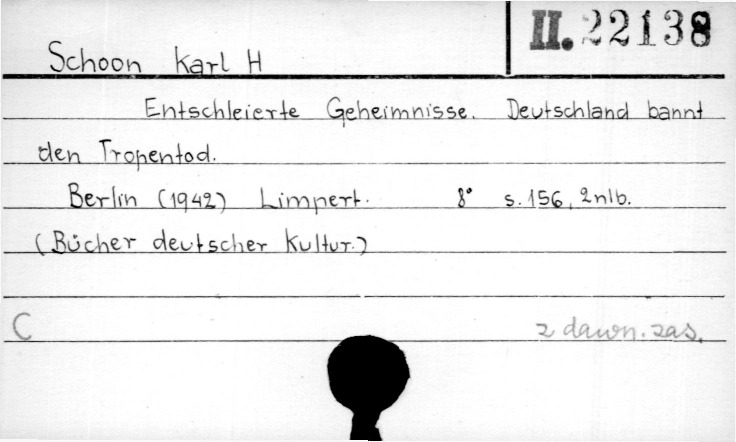 II. 22138
Schoon Karl H
Entschleierte Geheimnisse. Deutschland bannt
den Tropentod.
Berlin (1942) Limpert. 8° s. 156, 2nlb.
(Bücher deutscher Kultur.)
C z dawn. zas.